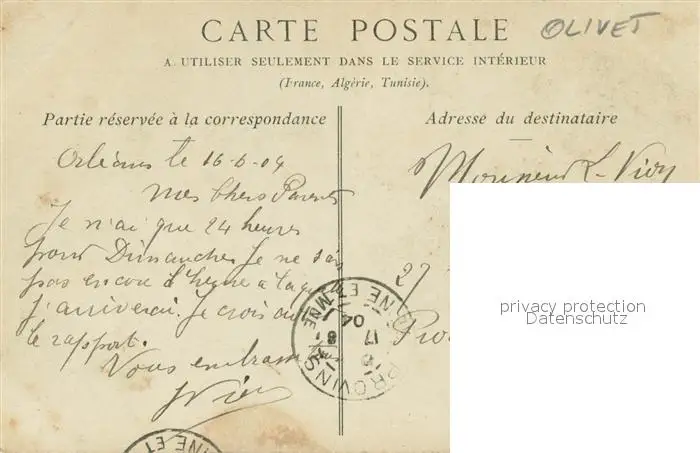 CARTE POSTALE
OLIVET
A UTILISER SEULEMENT DANS LE SERVICE INTÉRIEUR
(France, Algérie, Tunisie).
Partie réservée à la correspondance
Adresse du destinataire
Orléans le 16-6-04
Mes Chers Parents
Je n'ai que 24 heures
pour Dimanche. Je ne sais
pas encore l'heure à laquelle
j'arriverai. Je crois au
le rapport.
Vous embrasse
Monsieur L. Viry
27
PROVINS
SEINE ET MNE
17
6
04
NE ET
privacy protection
Datenschutz